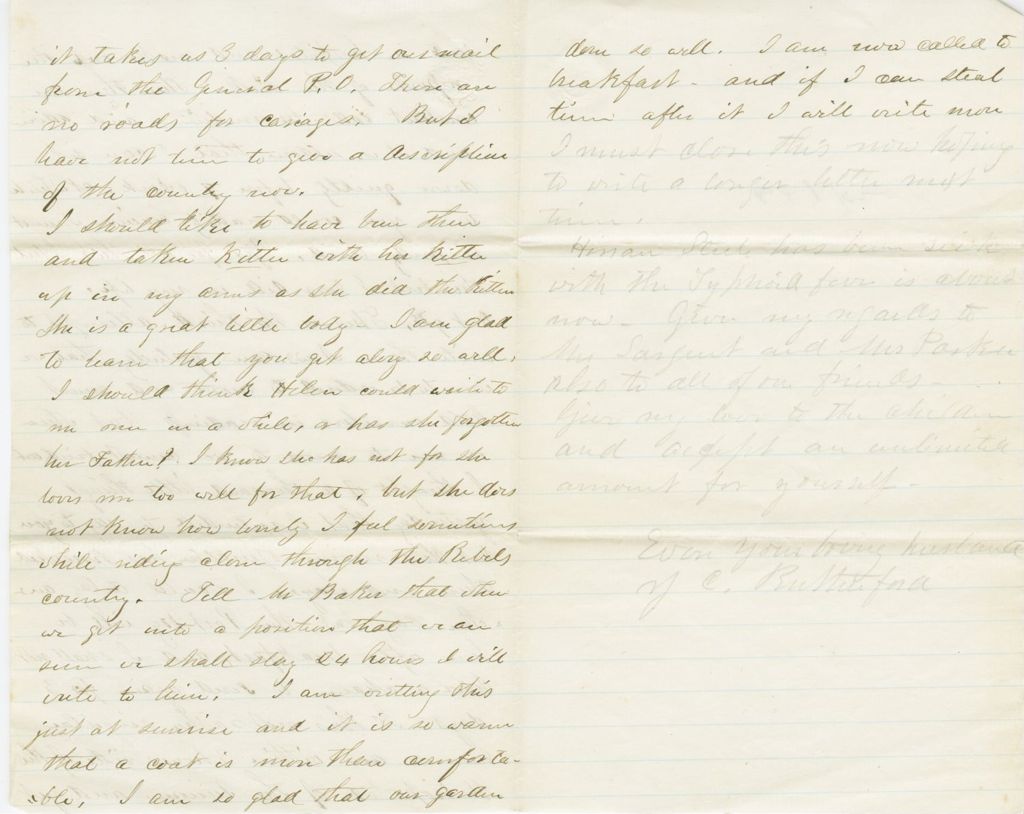 it takes us 3 days to get our mail
from the General P.O. There are
no roads for cariages. But I
have not time to give a description
of the country now.
I should like to have been there
and taken Kittee with her kittee
up in my arms as she did the kitten
She is a great little body - I am glad
to learn that you get along so well.
I should think Helen could write to
me once in a while, or has she forgotten
her Father? I know she has not for she
loves me too well for that, but she does
not know how lonely I feel sometimes
while riding alone through the Rebels
country. Tell Mr Baker that when
we get into a position that we are
sure we shall stay 24 hours I will
write to him. I am writting this
just at sunrise and it is so warm
that a coat is more than comforta-
ble. I am so glad that our garden
does so well. I am now called to
breakfast - and if I can steal
time after it I will write more
I must close this now hoping
to write a longer letter next
time.
Hiram Steele has been sick
with the Typhoid fever is about
now - Give my regards to
Mrs Sargent and Mrs Parker
also to all of our friends
Give my love to the children
and accept an unlimited
amount for yourself -
Ever your loving husband
J C. Rutherford